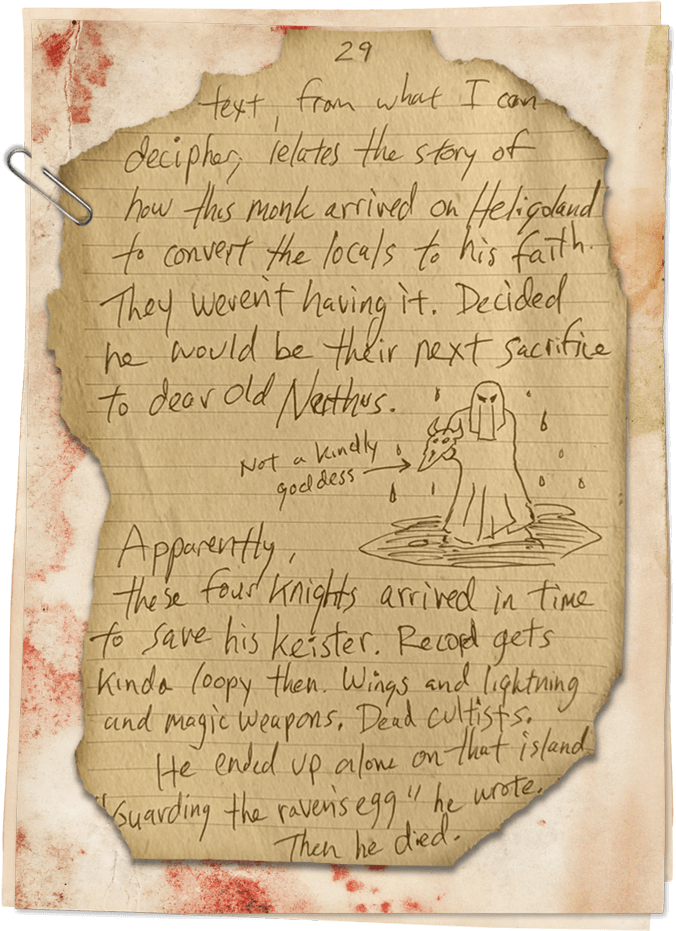 29
text, from what I can
decipher, relates the story of
how this monk arrived on Heligoland
to convert the locals to his faith.
They weren't having it. Decided
he would be their next sacrifice
to dear old Nerthus.
Not a kindly
goddess
Apparently,
these four knights arrived in time
to save his keister. Record gets
kinda loopy then. Wings and lightning
and magic weapons. Dead cultists.
He ended up alone on that island
"guarding the raven's egg" he wrote.
Then he died.